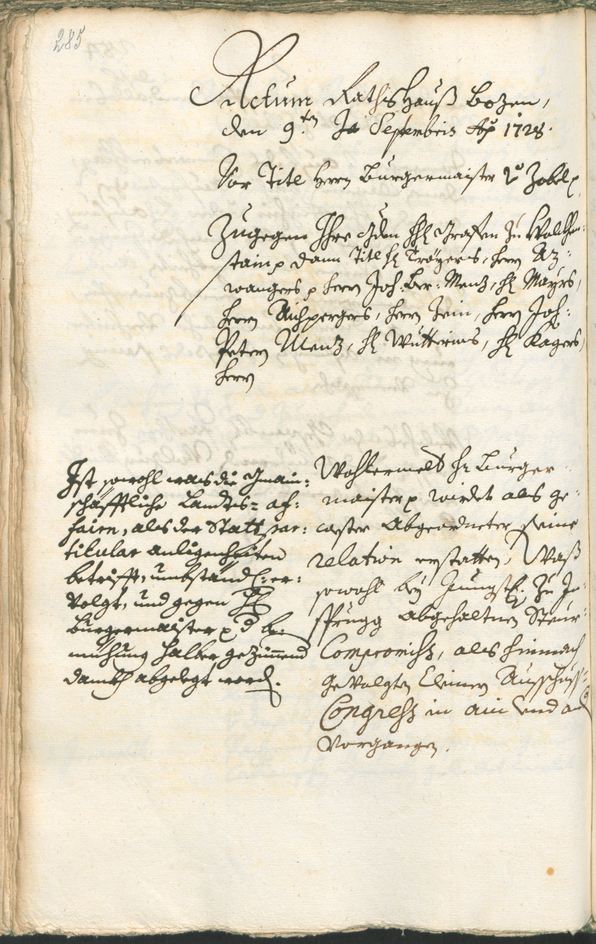 285
Actum RathsHauß Bozen,
den 9.ten 7bris Septembris Aō 1728.
Vor Titl Herrn Burgermaister v: Zobel p
Zugegen Ihro Gdn Hl Grafen zu Wolkhen-
stain p dann Titl Hl Trogers, Herrn Az-
wangers p Herrn Joh: Ber: Menz, Hl Mayrs,
Herrn Aichpergers, Herrn Zein, Herrn Joh:
Peter Menz, Hl Wutterins, Hl Kagers,
Herrn
Ist sowohl was die Gmain-
schafftliche Landts- af-
fairn, als der Statt par-
ticular anligenheiten
betrifft, umbständl: er-
volgt, und gegen Hl
Burgermaister p d be-
müehung halber gezimend
dankh abgelegt word.
Wohlermelt Hr Burger-
maister p wirdet als ge-
wester Abgeordneter seine
relation erstatten, Waß
sowohl bey Jüngst zu In-
sprugg abgehaltnen Steur-
Compromiss, als hernach
gevolgten Clainen Ausschuss-
Congress in ain und and
vorgangen.